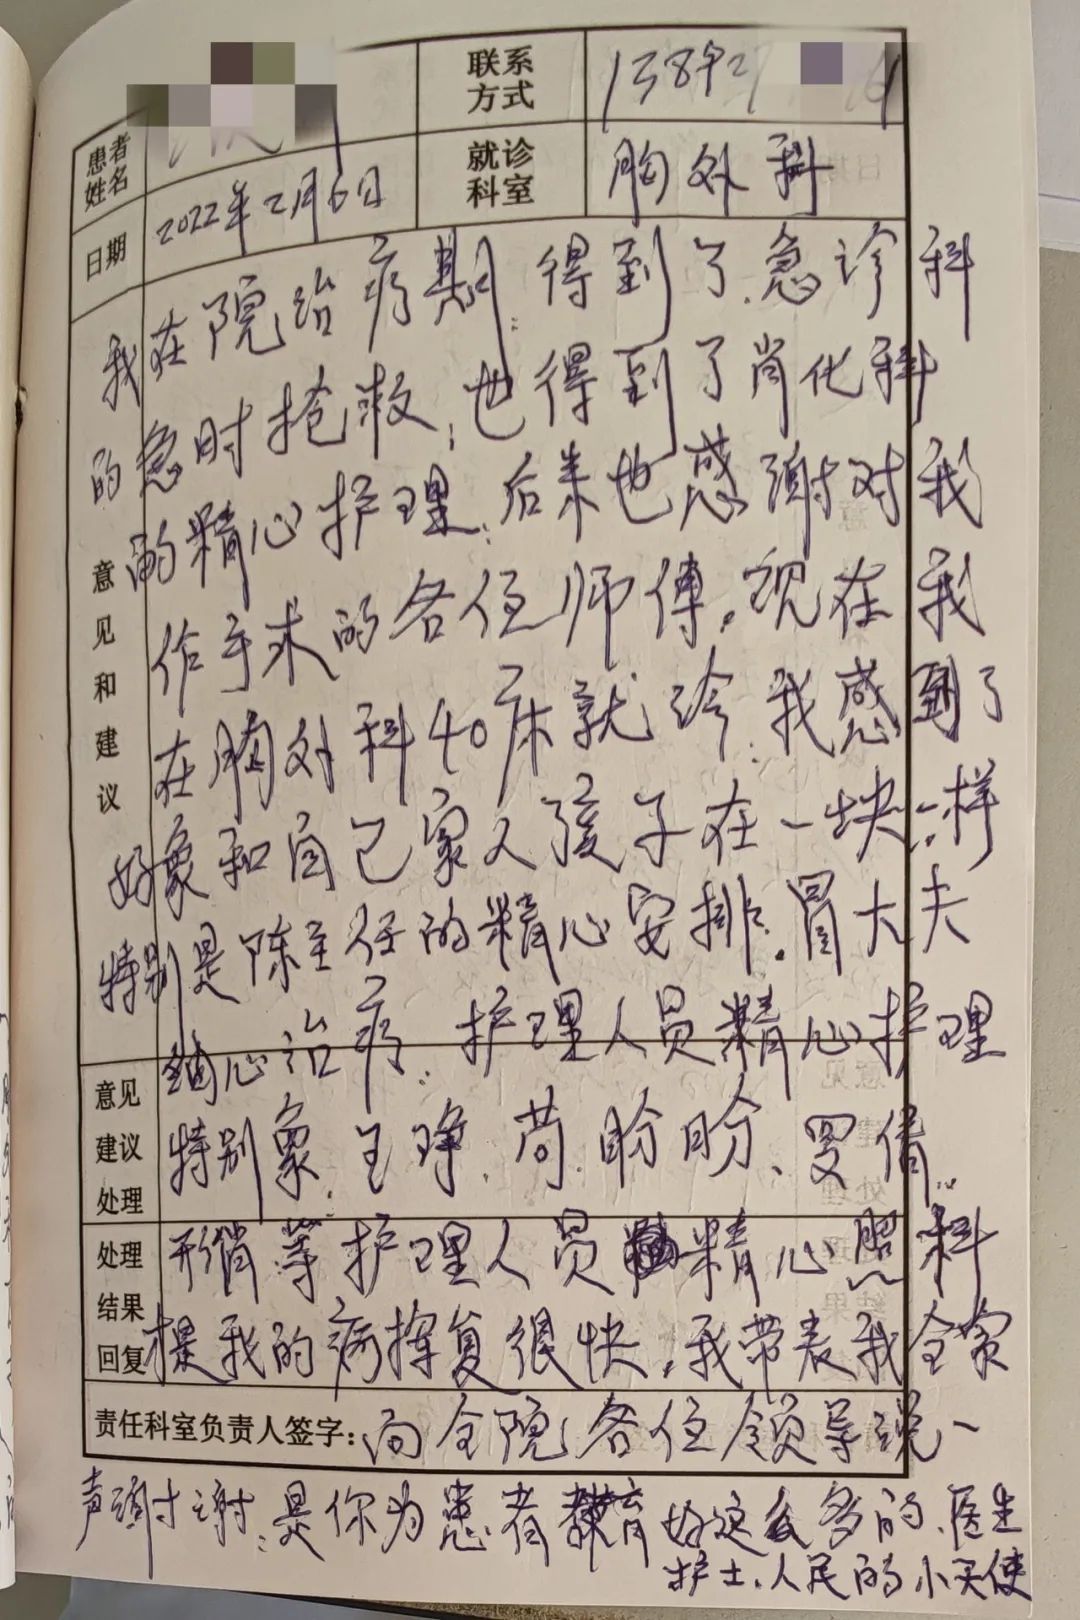 患者姓名
联系方式 138
日期 2022年2月6日
就诊科室 胸外科
意见和建议
我在院治病期.得到了.急诊科
的急时抢救,也得到了肖化科
的精心护理.后来也感谢对我
作手术的各位师傅.现在我
在胸外科40床就诊.我感到了
好象和自己家人孩子在一块一样
特别是陈主任的精心安排.冒大夫
细心治疗.护理人员精心护理
意见建议处理
特别象.王琤.苟盼盼.罗倩.
处理结果回复
形俏等护理人员精心照料
是我的病挥复很快.我带表我全家
责任科室负责人签字:
向全院各位领导说一
声谢谢.是你为患者教育好这么多的.医生
护士.人民的小天使